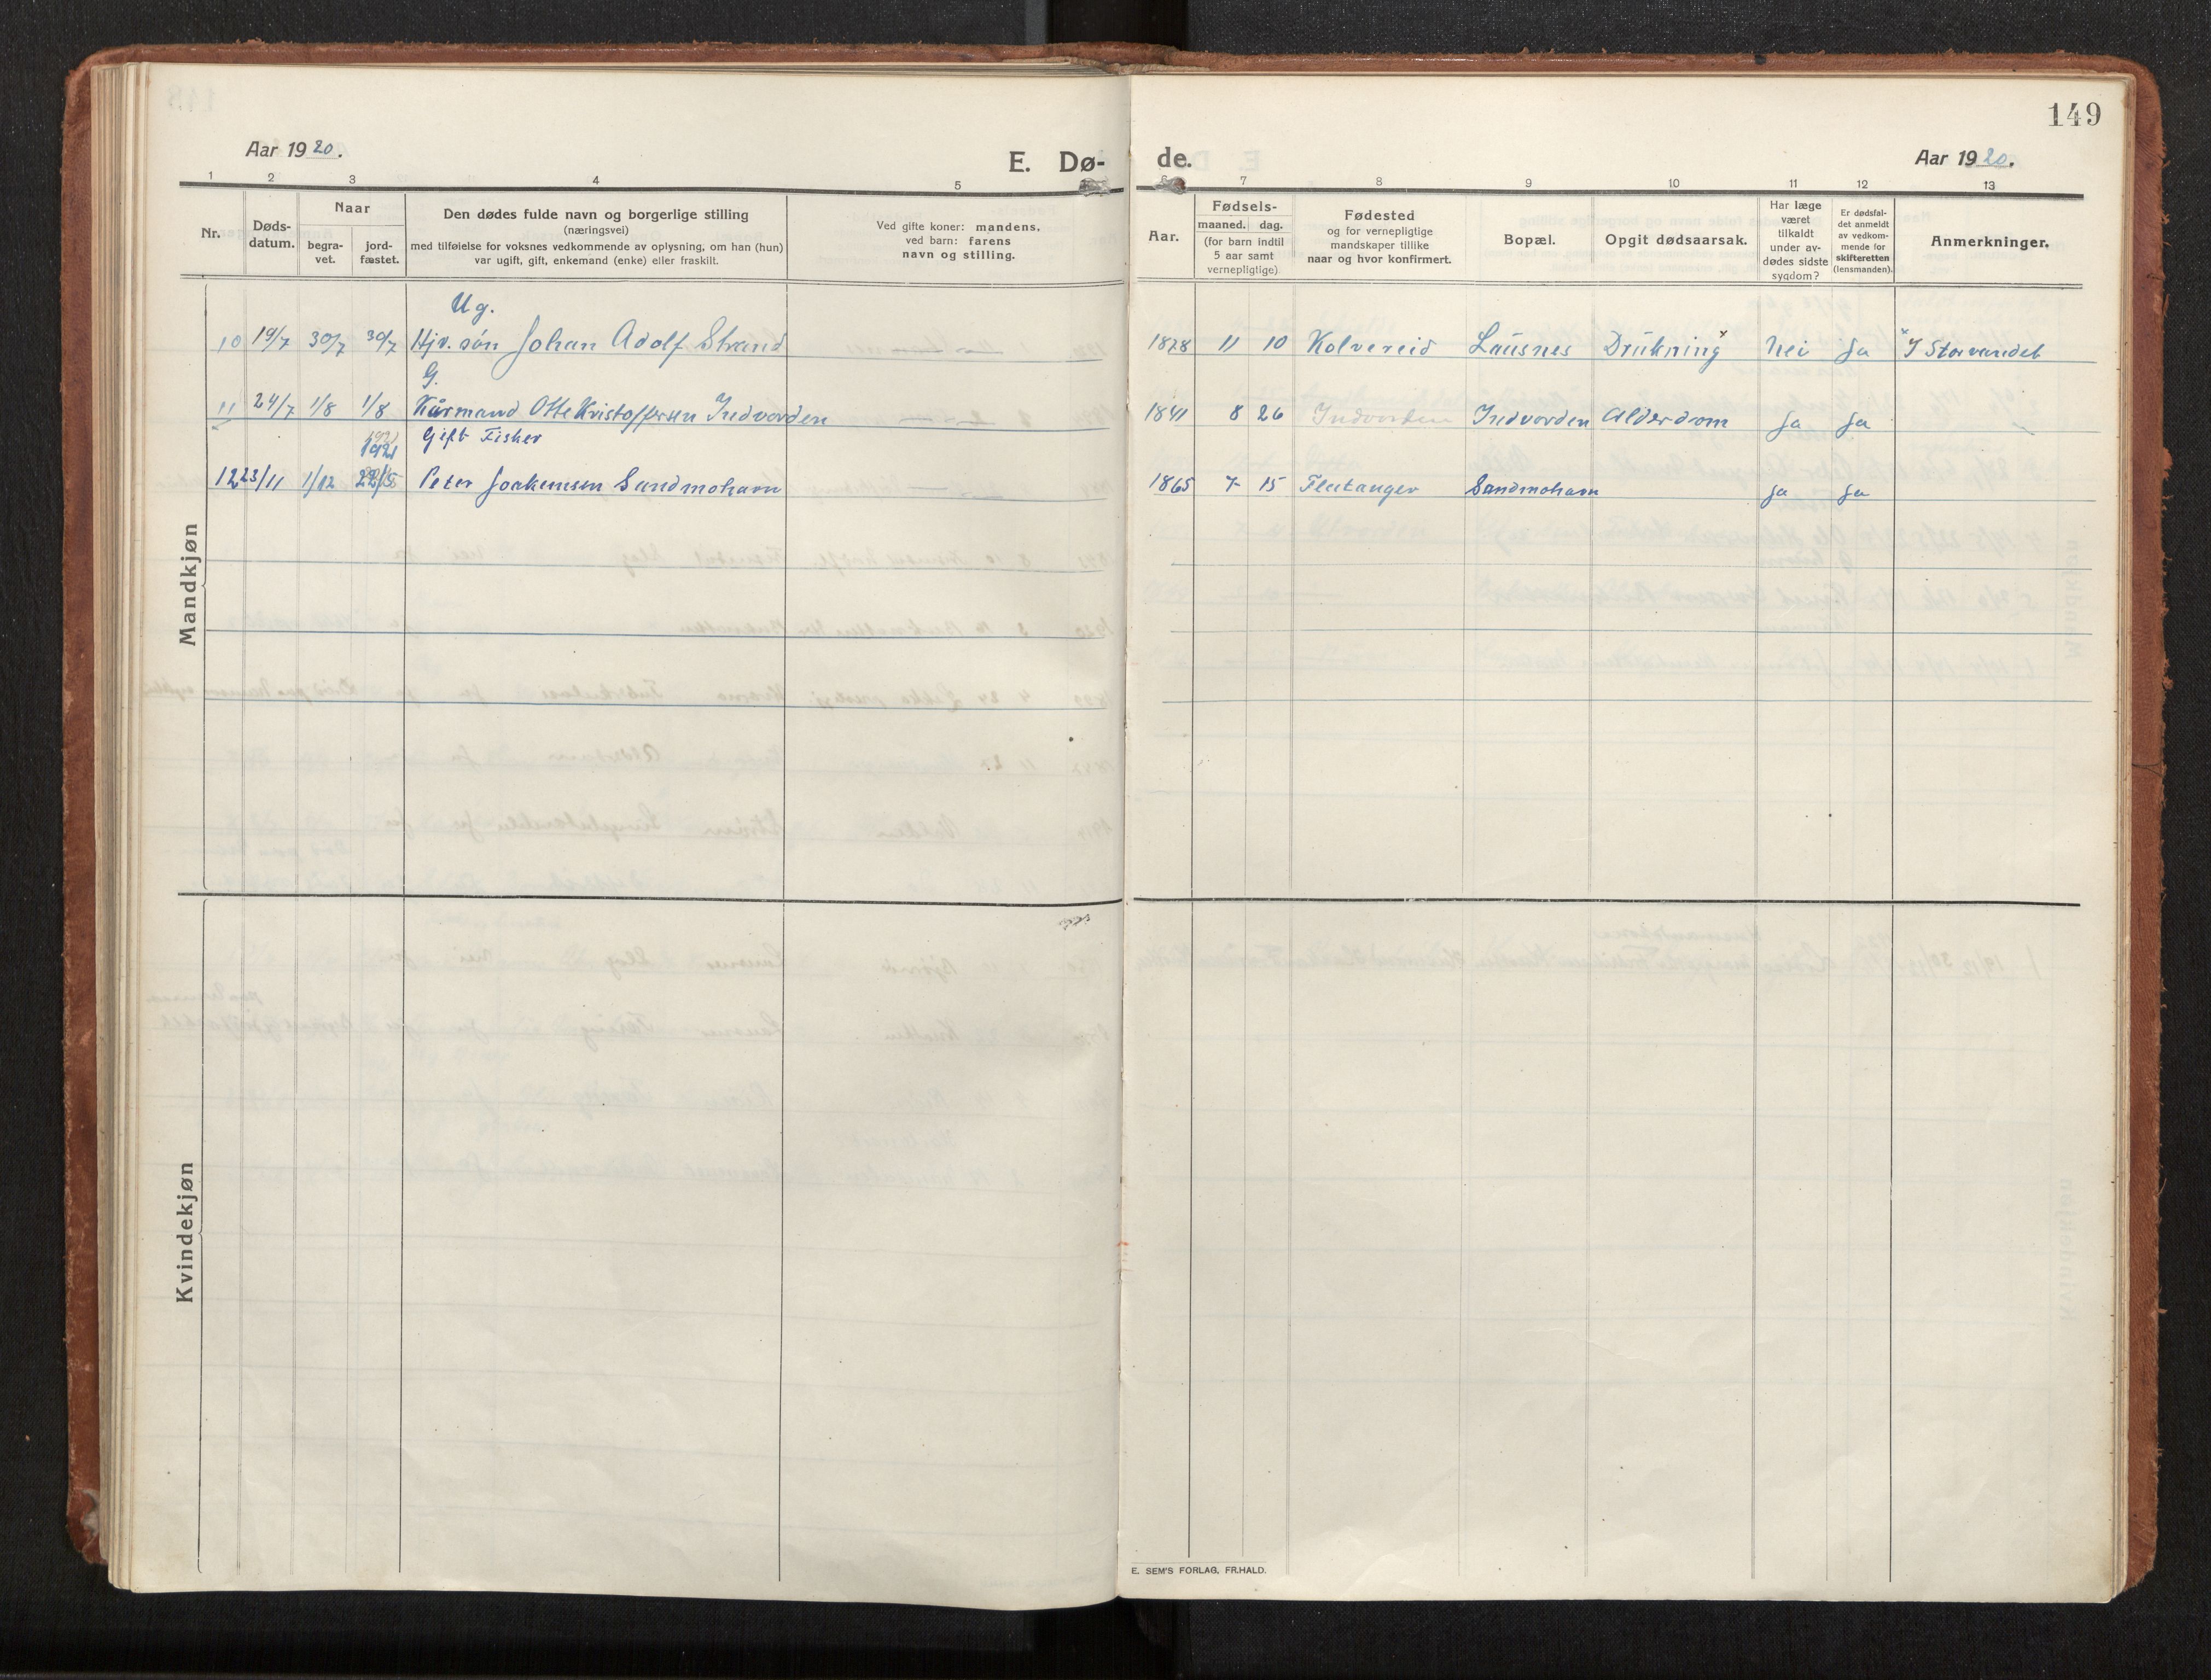 149
Aar 1920.
E. Dø-
de.
Aar 1920.
1 2 3 4 5 6 7 8 9 10 11 12 13
Nr.
Døds-
datum.
Naar
begra-
vet.
jord-
fæstet.
Den dødes fulde navn og borgerlige stilling
(næringsvei)
med tilføielse for voksnes vedkommende av oplysning, om han (hun)
var ugift, gift, enkemand (enke) eller fraskilt.
Ved gifte koner: mandens,
ved barn: farens
navn og stilling.
Aar.
Fødsels-
maaned. dag.
(for barn indtil
5 aar samt
vernepligtige)
Fødested
og for vernepligtige
mandskaper tillike
naar og hvor konfirmert.
Bopæl.
Opgit dødsaarsak.
Har læge
været
tilkaldt
under av-
dødes sidste
sygdom?
Er dødsfal-
det anmeldt
av vedkom-
mende for
skifteretten
(lensmanden).
Anmerkninger.
Mandkjøn
Ug.
10 19/7 30/7 30/7 Hjv. søn Johan Adolf Strand 1878 11 10 Kolvereid Lausnes Drukning x Nei Ja x I Storvandet
G.
11 24/7 1/8 1/8 Kårmand Otte Kristoffersen Indvorden 1841 8 26 Indvorden Indvorden Alderdom Ja Ja
1921 Gift Fisker
12 23/11 1/12 22/5 Peter Joakimsen Sandmohavn 1865 7 15 Flatanger Sandmohavn Ja Ja
Kvindekjøn
E. SEM'S FORLAG, FR.HALD.